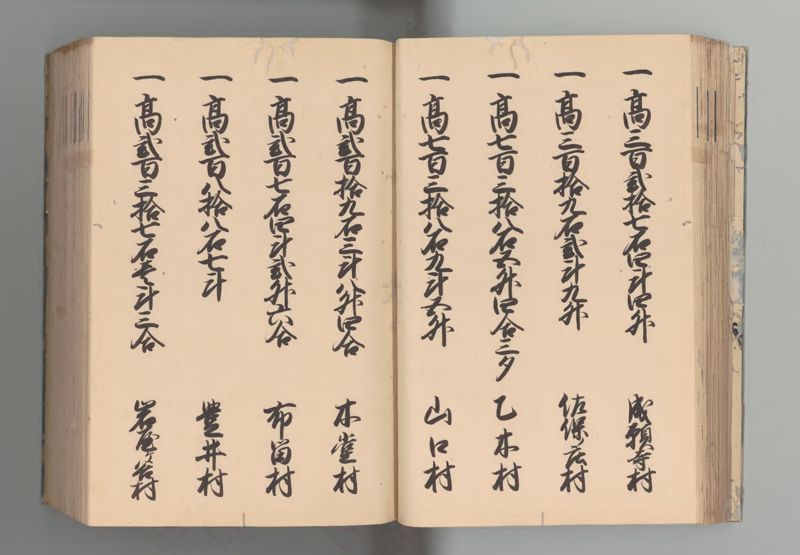 一高三百弐拾七石四斗四升 成願寺村
一高三百拾九石弐斗九升 佐保庄村
一高七百三拾八石五升四合三夕 乙木村
一高七百三拾八石九斗五升 山口村
一高弐百拾九石三斗八升四合 木堂村
一高弐百七石四斗弐升六合 布留村
一高弐百八拾八石七斗 豊井村
一高弐百三拾七石壱斗三合 岩屋ヶ谷村